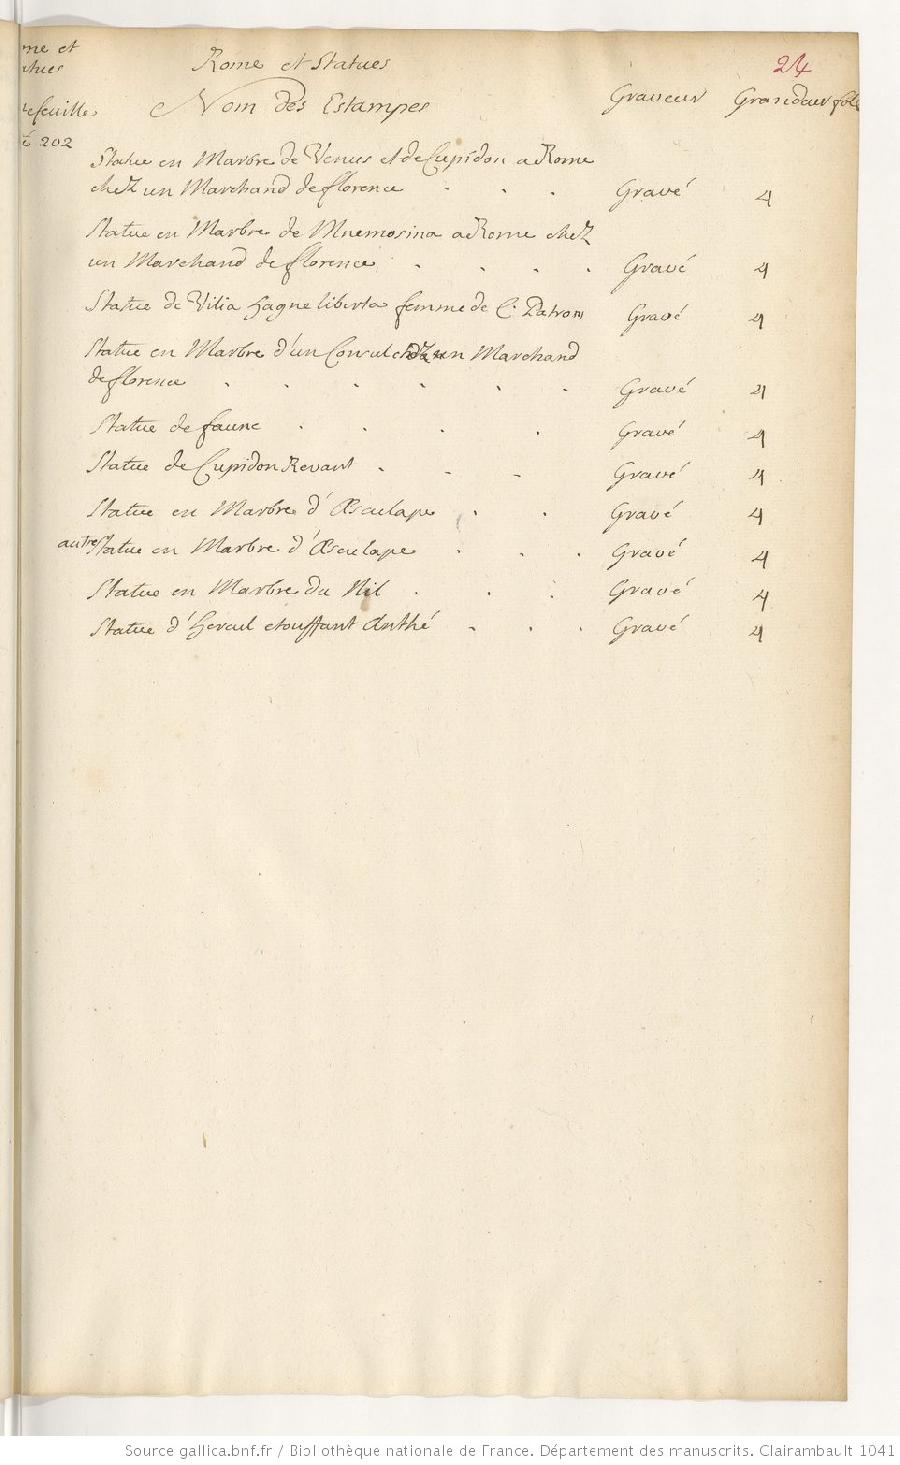 me et
Rome et Statues
24
tues
Nom des Estampes
Graveur
Grandeur fol
feuilles
202
Statue en Marbre de Venus et de Cupidon a Rome
chez un Marchand de florence . . . Gravé 4
Statue en Marbre de Mnemosina a Rome chez
un Marchand de florence . . . . Gravé 4
Statue de Vilia hagne liberta femme de C. Patron Gravé 4
Statue en Marbre d'un Consul chez un Marchand
de florence . . . . . . Gravé 4
Statue de faune . . . . Gravé 4
Statue de Cupidon Revant . - - Gravé 4
Statue en Marbre d'Æsculape . . Gravé 4
autre Statue en Marbre d'Æsculape . . . Gravé 4
Statue en Marbre du Nil . . . Gravé 4
Statue d'Hercul etouffant Anthé . . . Gravé 4
Source gallica.bnf.fr / Bibliothèque nationale de France. Département des manuscrits. Clairambault 1041